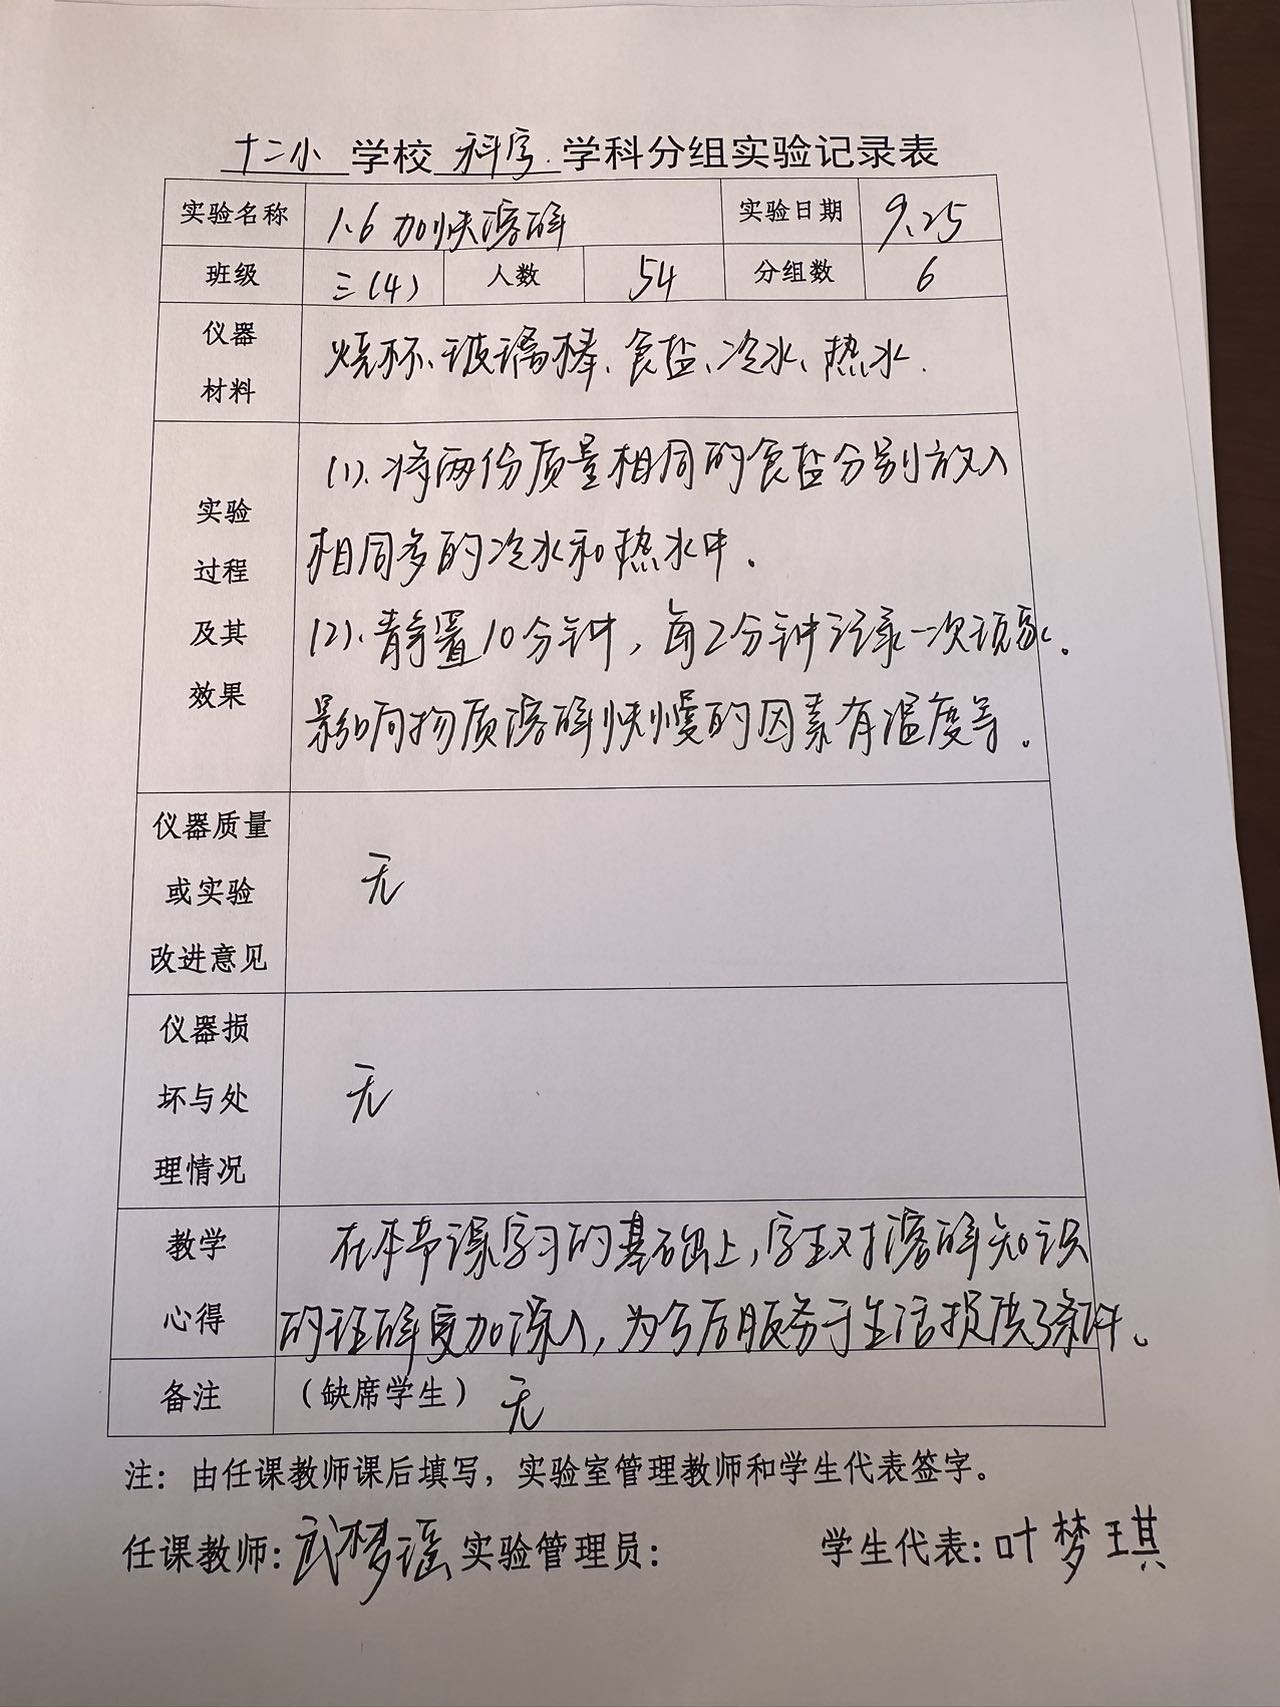 十二小 学校 科学 学科分组实验记录表
实验名称 1.6 加快溶解 实验日期 9.25
班级 三(4) 人数 54 分组数 6
仪器
材料
烧杯、玻璃棒、食盐、冷水、热水.
实验
过程
及其
效果
(1).将两份质量相同的食盐分别放入
相同多的冷水和热水中.
(2).静置10分钟,每2分钟记录一次现象.
影响物质溶解快慢的因素有温度等.
仪器质量
或实验
改进意见
无
仪器损
坏与处
理情况
无
教学
心得
在本节课学习的基础上,学生对溶解知识
的理解更加深入,为今后服务于生活提供了条件。
备注 (缺席学生) 无
注：由任课教师课后填写，实验室管理教师和学生代表签字。
任课教师: 武梦瑶 实验管理员: 学生代表: 叶梦琪